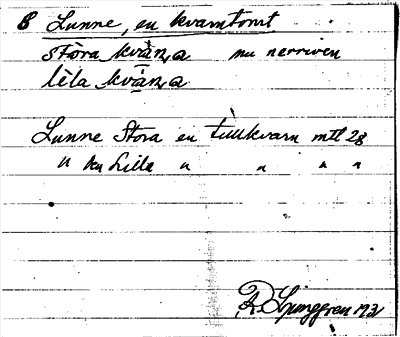 B Lunne, en kvarntomt
stòra kvàn,a nu nerriven
lìla kvàn,a
Lunne Stora en tullkvarn mtl 28
" den Lilla " " " "
R. Ljunggren 1932